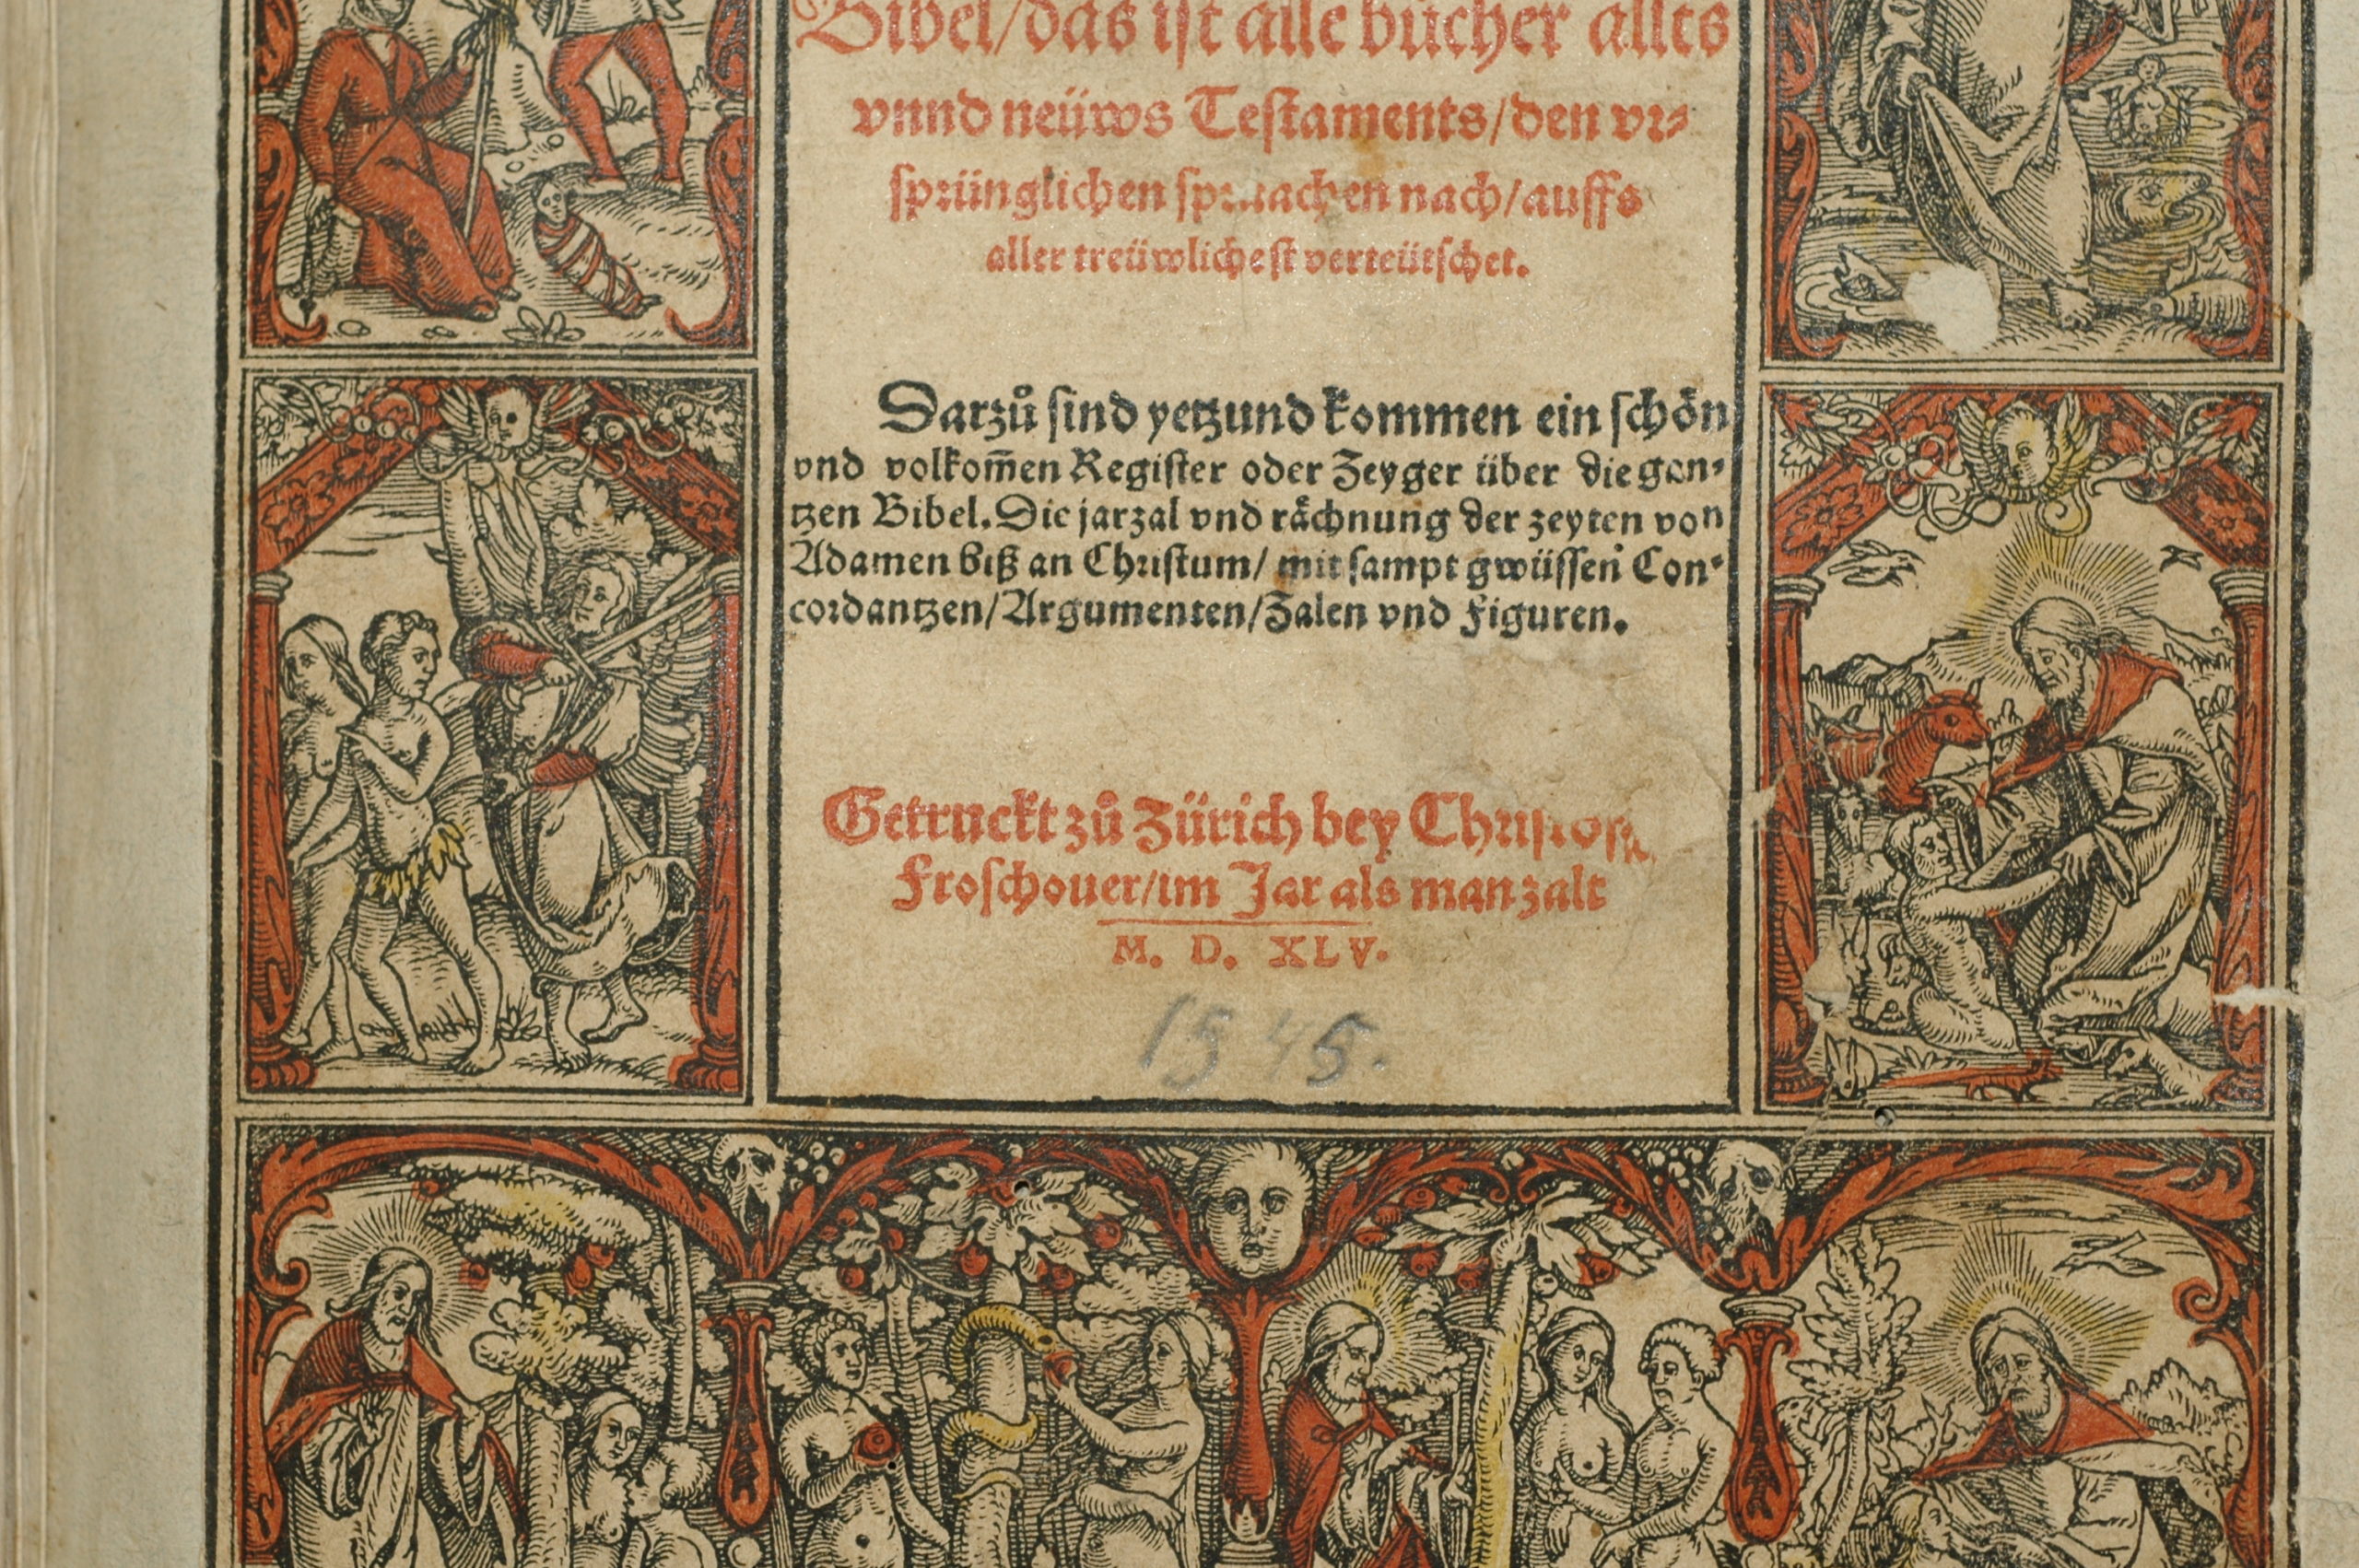 Bibel/das ist alle bücher allts
vnnd neüws Testaments/den vr⸗
sprünglichen spraachen nach/auffs
aller treüwlichest verteütschet.
Darzů sind yetzund kommen ein schön
vnd volkom̃en Register oder Zeyger über die gan⸗
tzen Bibel. Die jarzal vnd rächnung der zeyten von
Adamen biß an Christum/ mitsampt gwüssen Con⸗
cordantzen/Argumenten/Zalen vnd Figuren.
Getruckt zů Zürich bey Christoff
Froschouer/im Jar als man zalt
M. D. XLV.
1545.